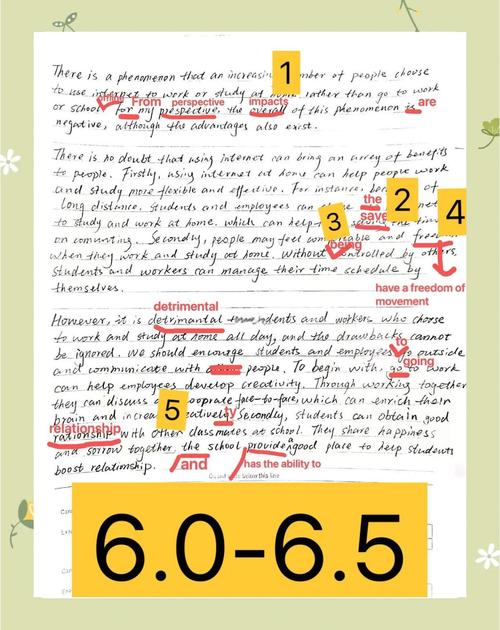 1
There is a phenomenon that an increasin mber of people choose
to use internet to work or study at home rather than go to work
offline From perspective impacts
or school for my prespective, the overall of this phenomenon is are
negative, although the advantages also exist.
There is no doubt that using internet can bring an array of benefits
to people. Firstly, using internet at home can help people work
and study more flexible and effective. For instance, of
the 2
long distance, students and employees can net
3 save 4
to study and work at home. which can help the tim
on commuting. Secondly, people may feel comfortable and free
being
when they work and study at home. Without controlled by others,
students and workers can manage their time schedule by
themselves.
have a freedom of
movement
detrimental
However, it is detrimantal students and workers who choose
to work and study at home all day, and the drawbacks cannot
to
be ignored. We should encourage students and employees go outside
going
and communicate with people. To begin with, go to work
can help employees develop creativity. Through working together
they can discuss face-to-face, which can enrich their
5
ty
brain and increase creatively. Secondly, students can obtain good
relationship
rationship with other classmates at school. They share happiness
and sorrow together, the school provide a good place to help students
and has the ability to
boost relationship.
6.0-6.5